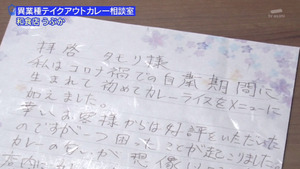 異業種テイクアウトカレー相談室
和食店 うぶか
tv asahi
拝啓 タモリ様
私はコロナ禍での自粛期間に
生まれて初めてカレーライスをメニューに
加えました。
幸いお客様からは好評をいただいた
のですが一つ困ったことが起こりました。
カレーの
が想像
店内に